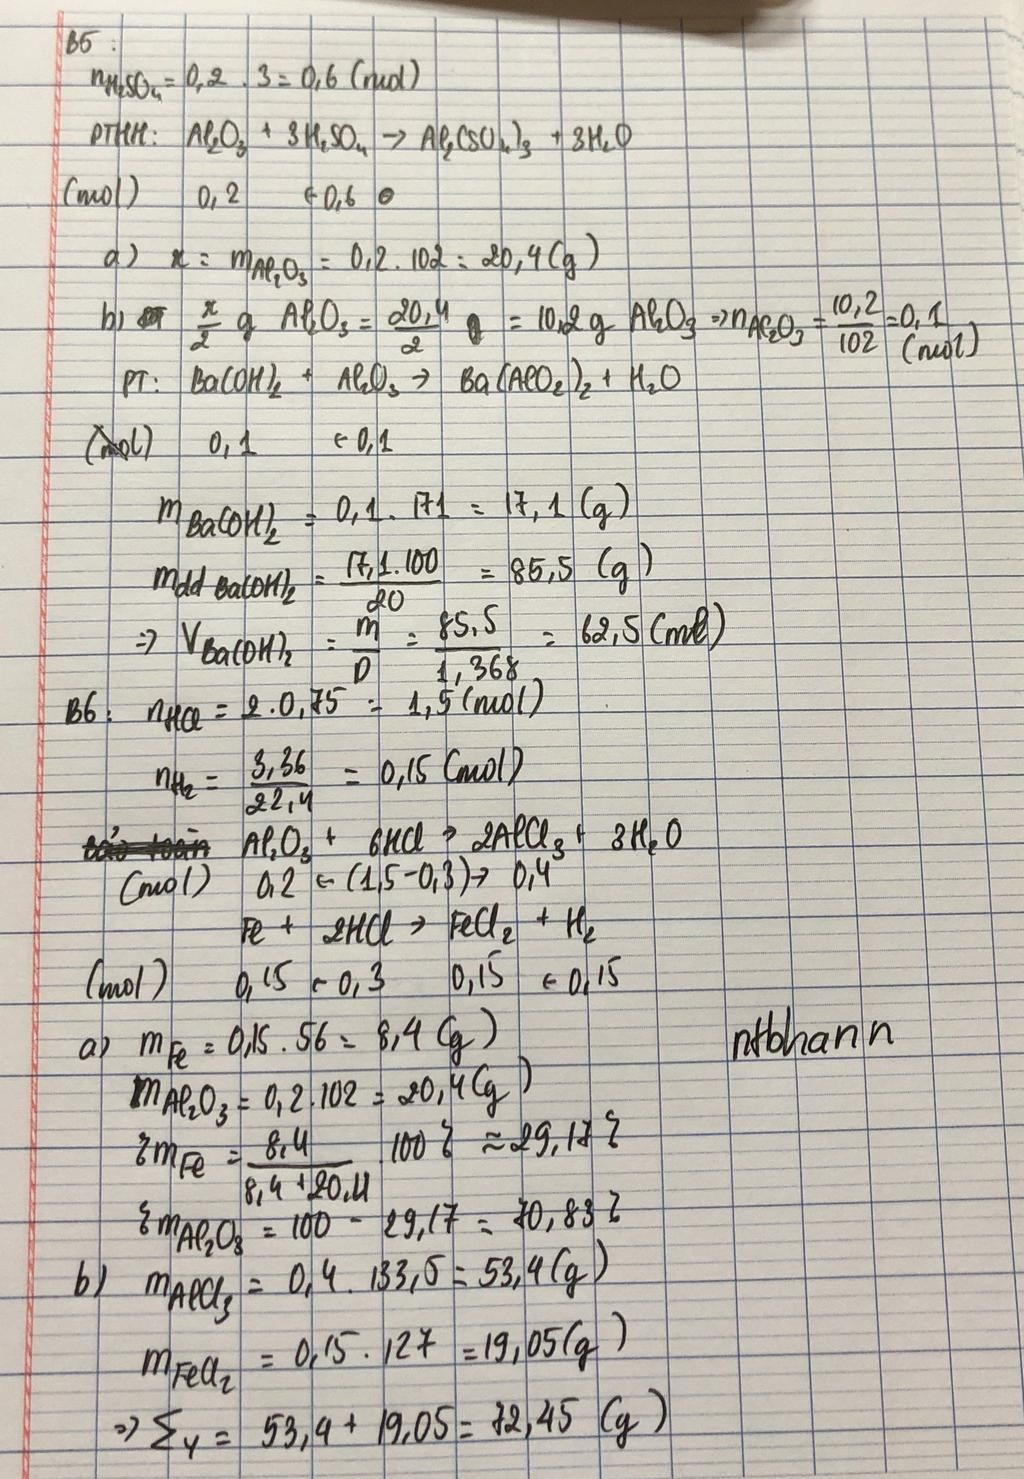 B5 :
nH₂SO₄ = 0,2 . 3 = 0,6 (mol)
PTHH: Al₂O₃ + 3H₂SO₄ → Al₂(SO₄)₃ + 3H₂O
(mol) 0,2 ← 0,6
a) x = mAl₂O₃ = 0,2 . 102 = 20,4 (g)
b) x/2 g Al₂O₃ = 20,4/2 = 10,2 g Al₂O₃ ⇒ nAl₂O₃ = 10,2/102 = 0,1 (mol)
PT: Ba(OH)₂ + Al₂O₃ → Ba(AlO₂)₂ + H₂O
(mol) 0,1 ← 0,1
mBa(OH)₂ = 0,1 . 171 = 17,1 (g)
mdd Ba(OH)₂ = 17,1.100/20 = 85,5 (g)
⇒ VBa(OH)₂ = m/D = 85,5/1,368 = 62,5 (ml)
B6 : nHCl = 2.0,75 = 1,5 (mol)
nH₂ = 3,36/22,4 = 0,15 (mol)
bảo toàn Al₂O₃ + 6HCl → 2AlCl₃ + 3H₂O
(mol) 0,2 ← (1,5-0,3) → 0,4
Fe + 2HCl → FeCl₂ + H₂
(mol) 0,15 ← 0,3 0,15 ← 0,15
a) mFe = 0,15 . 56 = 8,4 (g)
nthhann
mAl₂O₃ = 0,2.102 = 20,4 (g)
%mFe = 8,4/(8,4 + 20,4) 100% ≈ 29,17%
%mAl₂O₃ = 100 - 29,17 = 70,83%
b) mAlCl₃ = 0,4 . 133,5 = 53,4 (g)
mFeCl₂ = 0,15 . 127 = 19,05 (g)
⇒ ΣY = 53,4 + 19,05 = 72,45 (g)